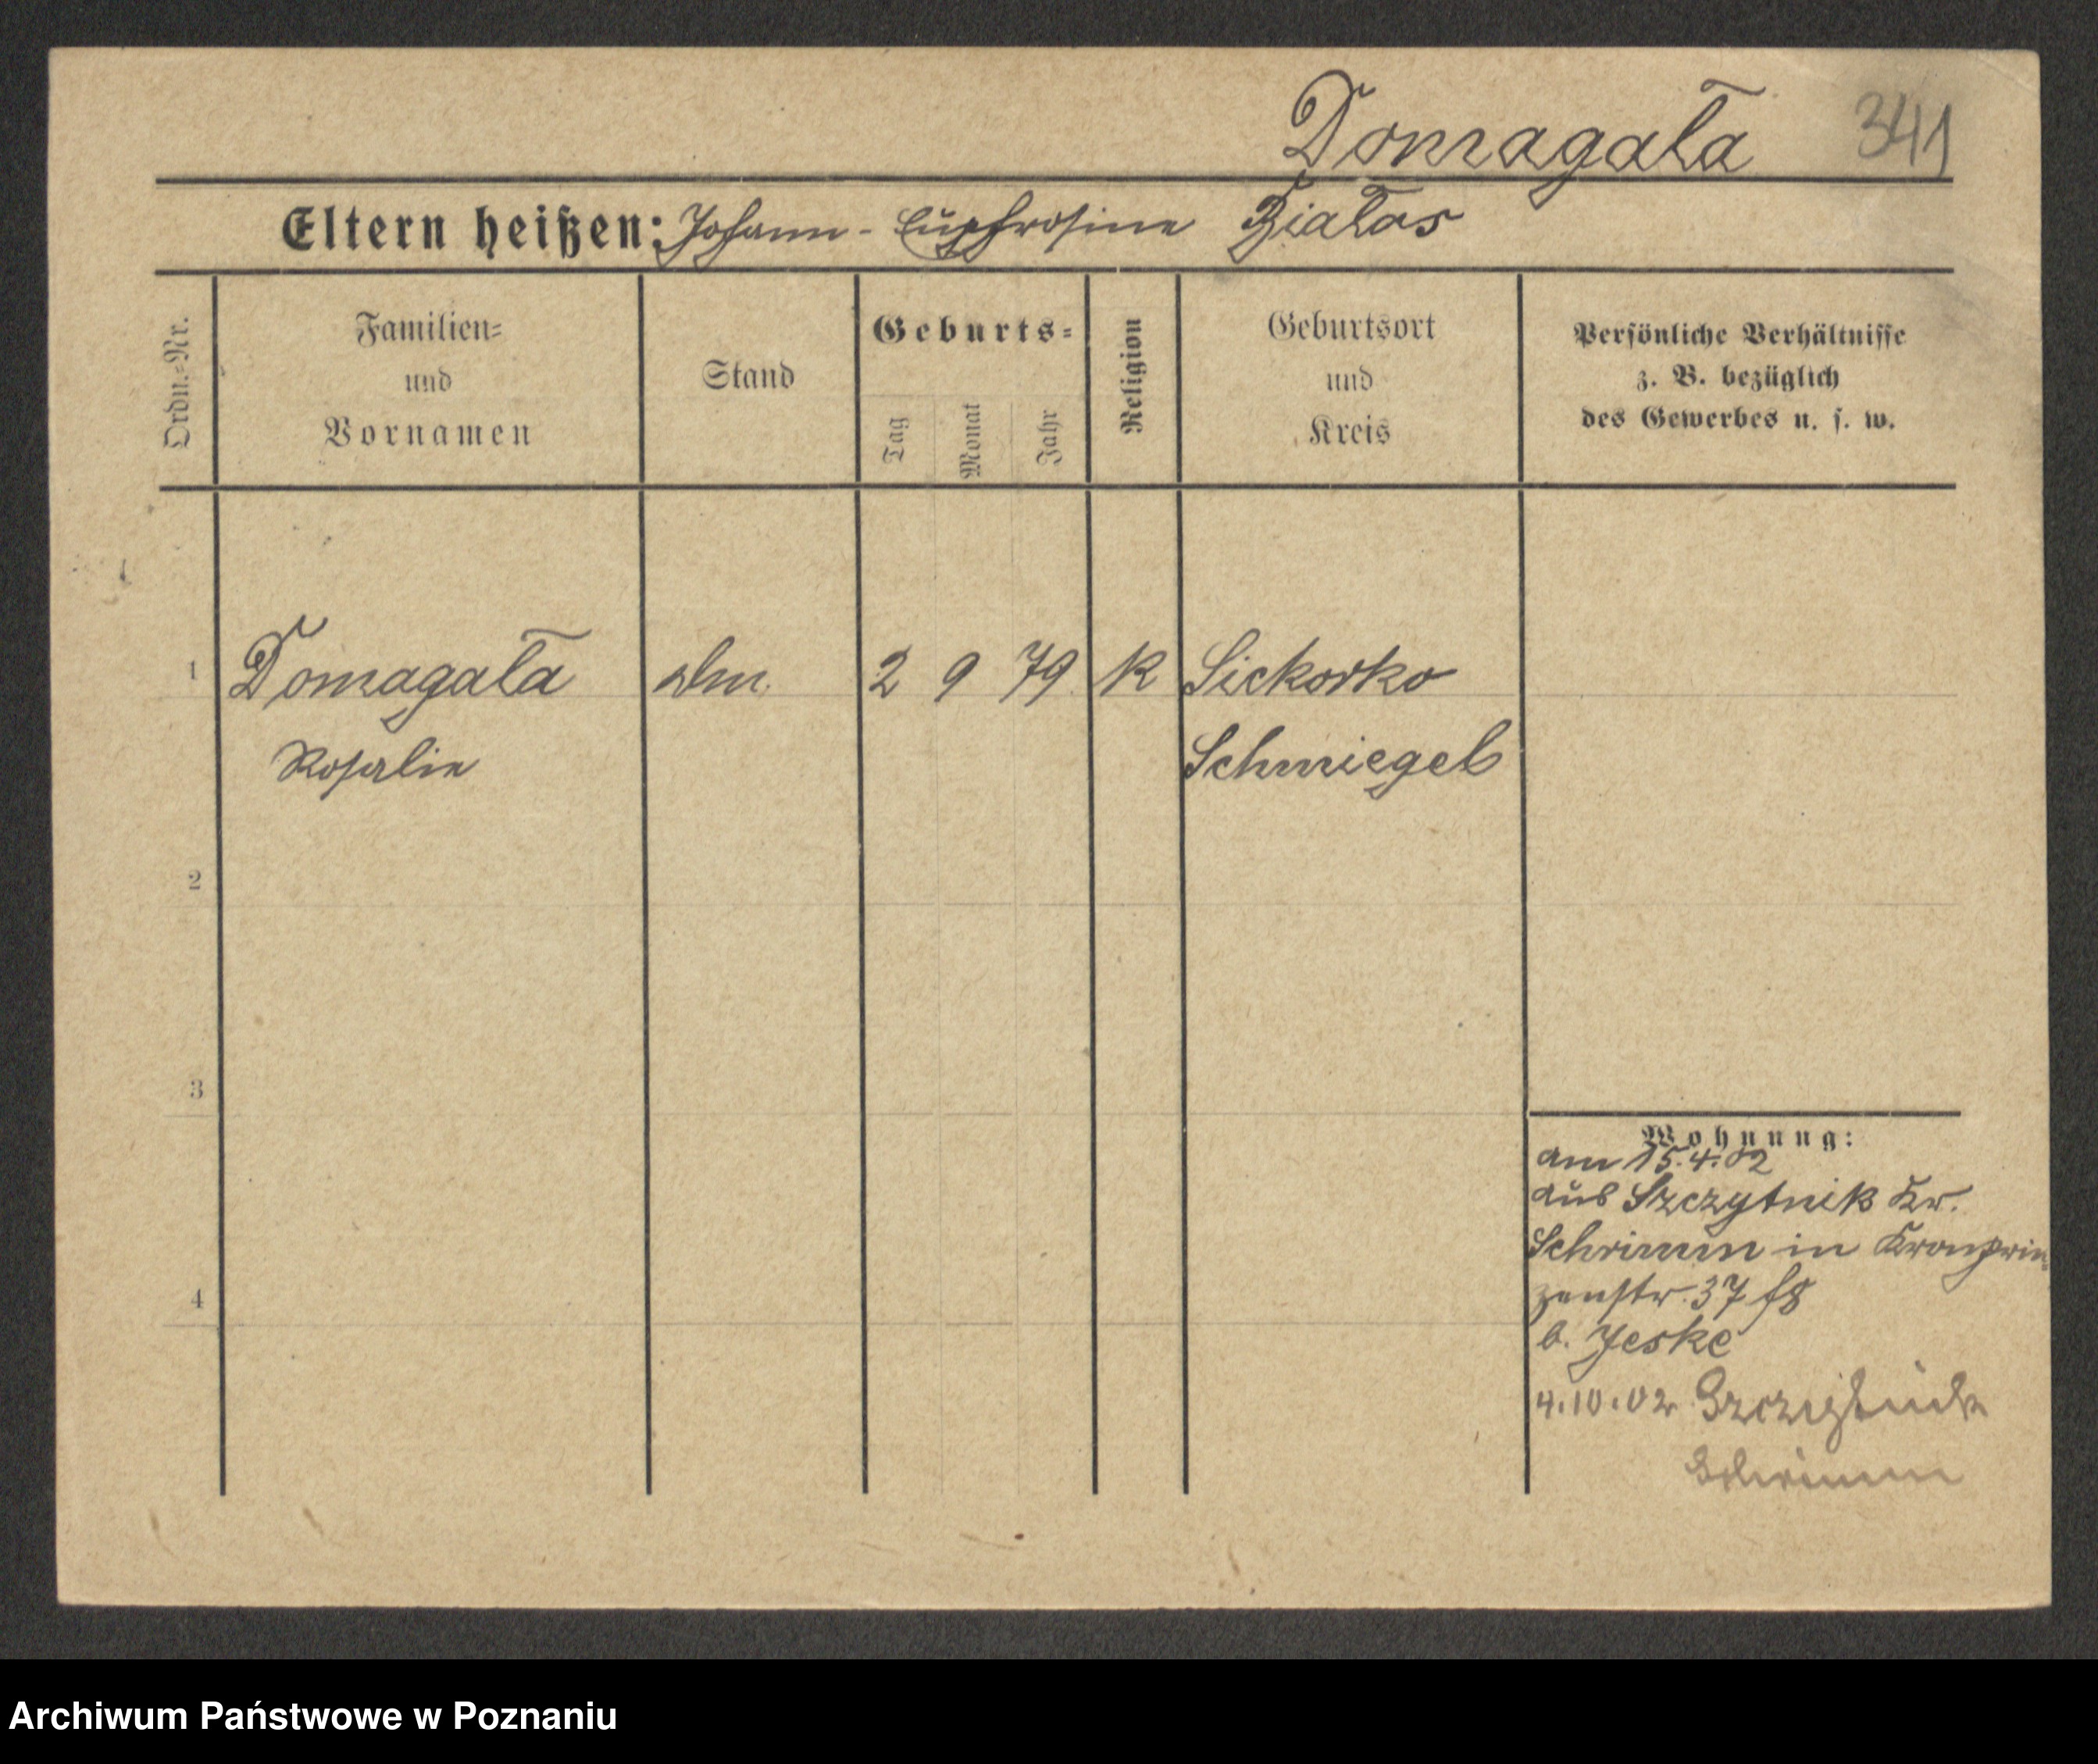 Domagała 341
Eltern heißen: Johann - Euphrosine Białas
Ordn.=Nr.
Familien=
und
Vornamen
Stand
Geburts=
Tag
Monat
Jahr
Religion
Geburtsort
und
Kreis
Persönliche Verhältnisse
z. B. bezüglich
des Gewerbes u. s. w.
1 Domagała 2 9 79 K Sickorko
Rosalie Schmiegel
2
3
4
Wohnung:
am 15.4.02
aus Szczytnik Kr.
Schrimm in Kronprin=
zenstr. 37
b. Jeske
4.10.02
Schrimm
Archiwum Państwowe w Poznaniu